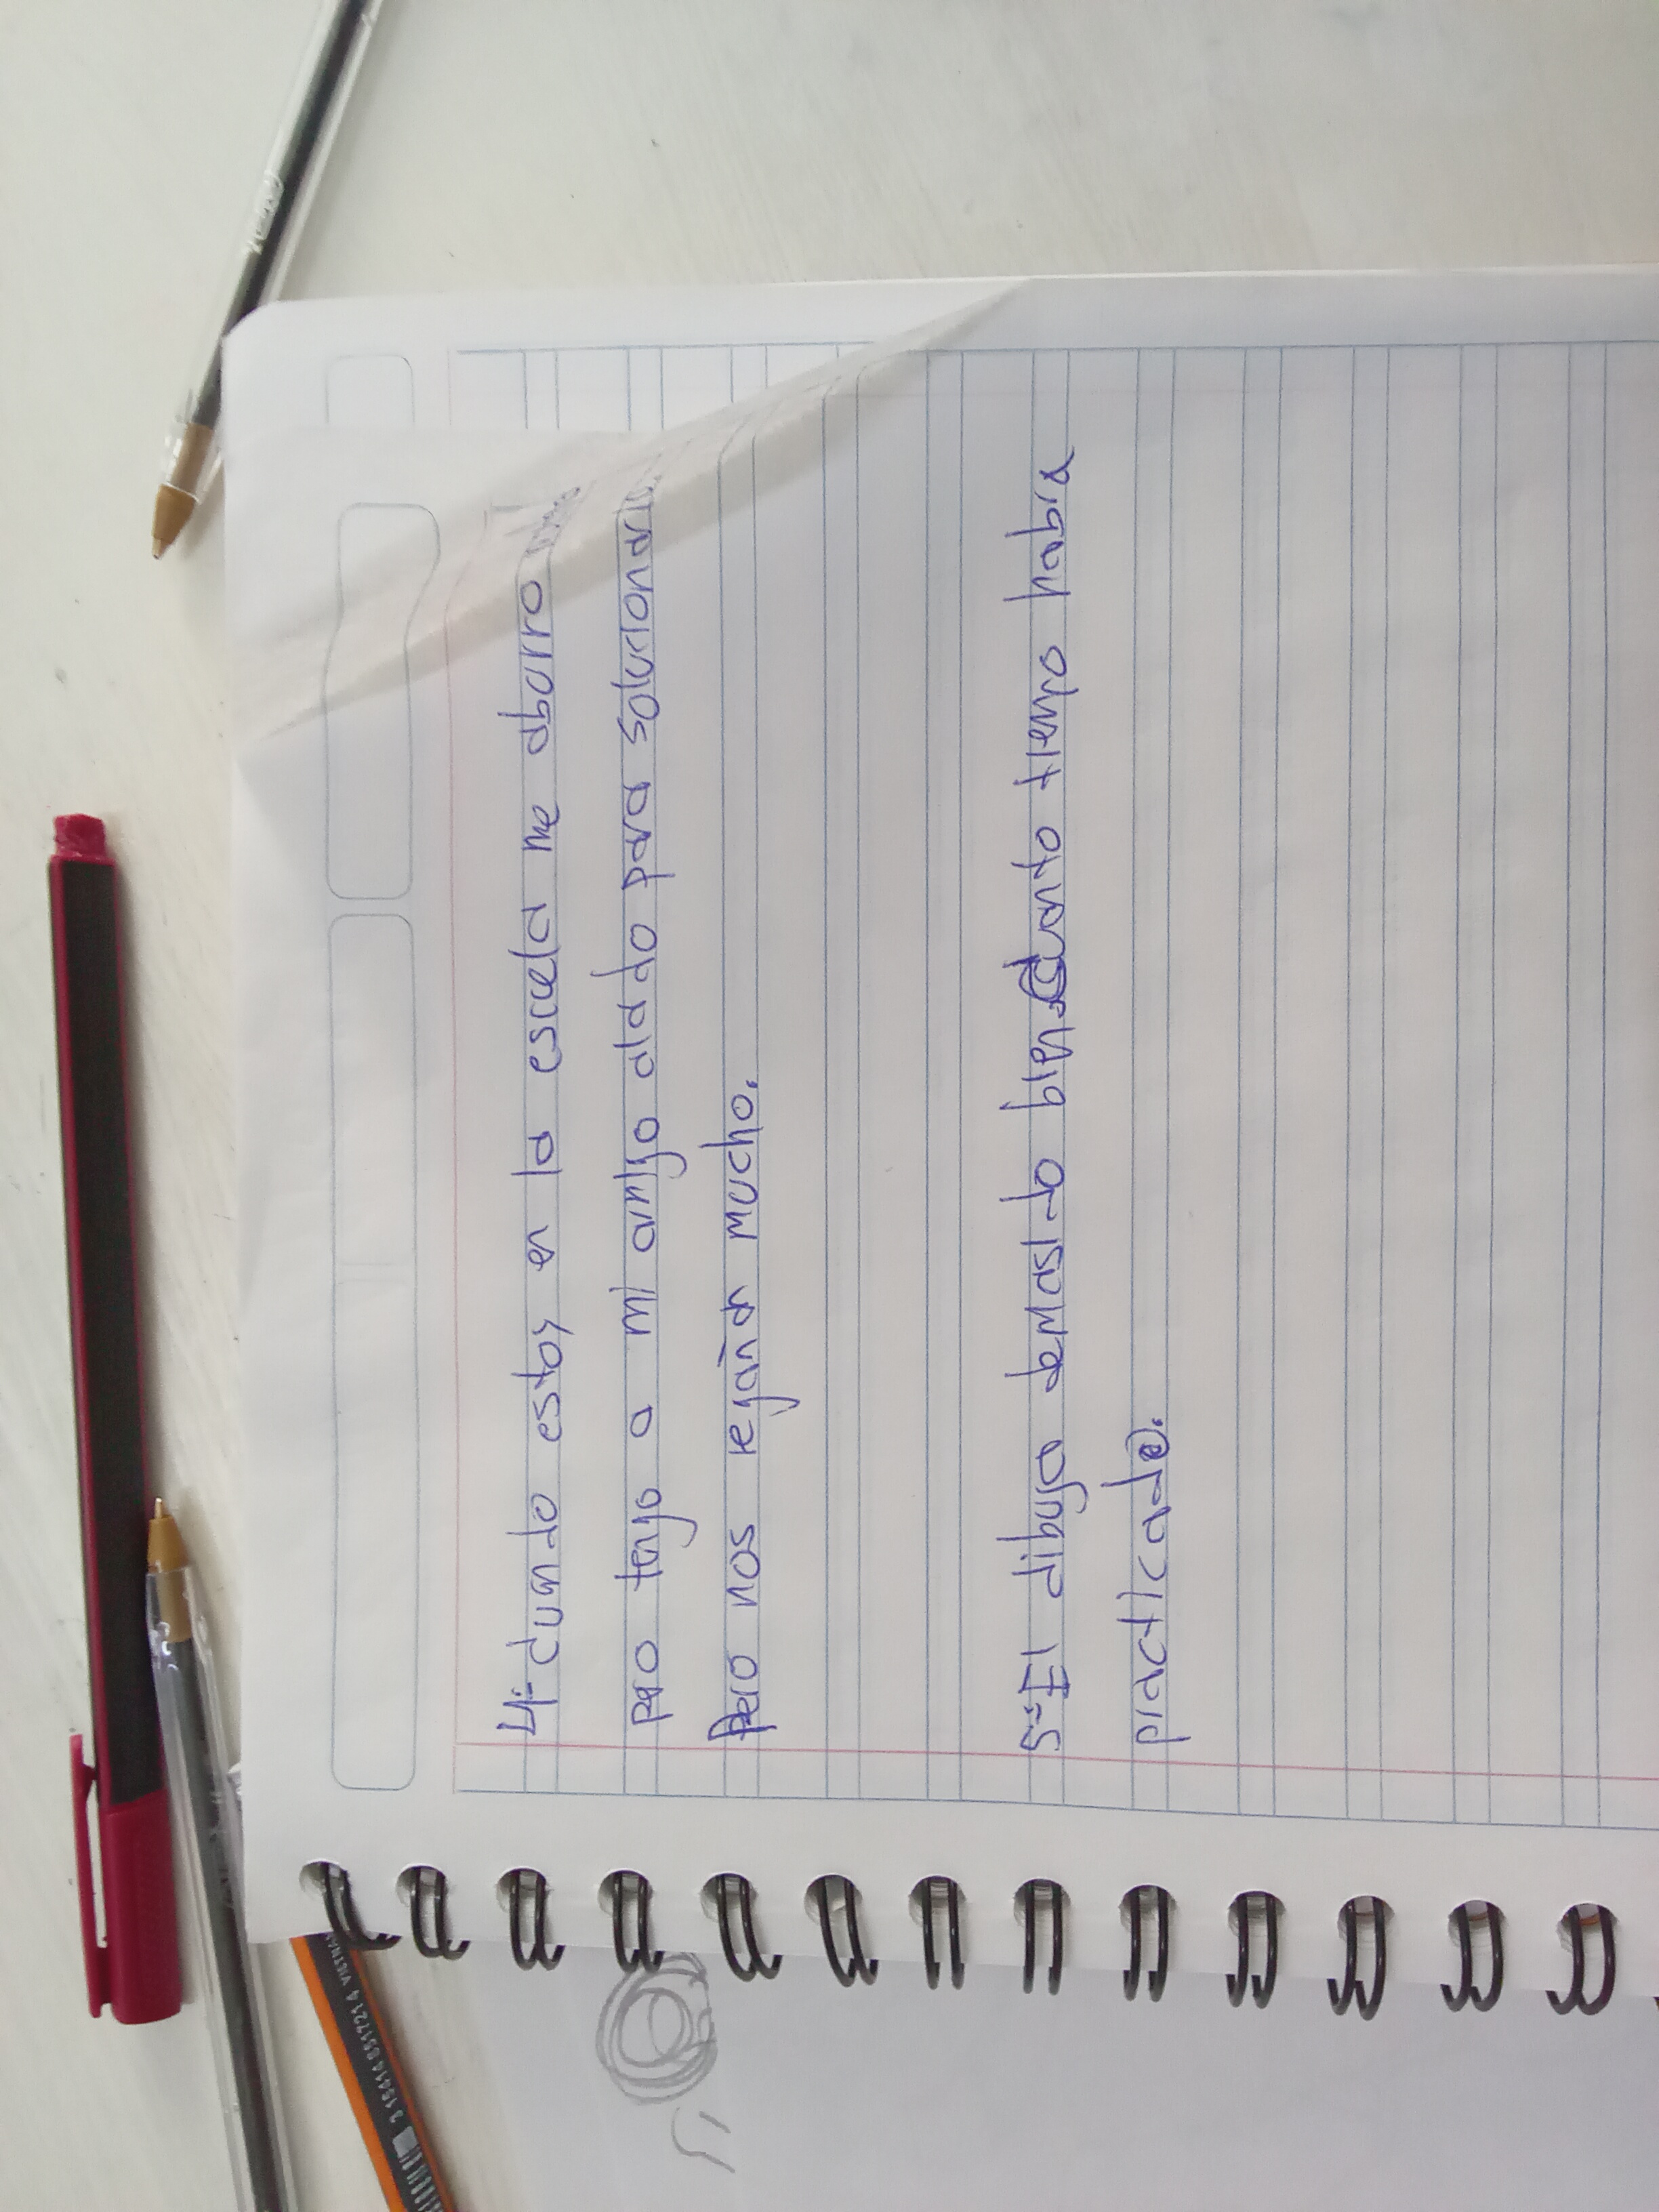 4.-cuando estoy en la escuela me aburro
pero tengo a mi amigo alado para solucionarlo
Pero nos regañan mucho.
5.-El dibujo demasido bien Cuanto tiempo habra
practicado.